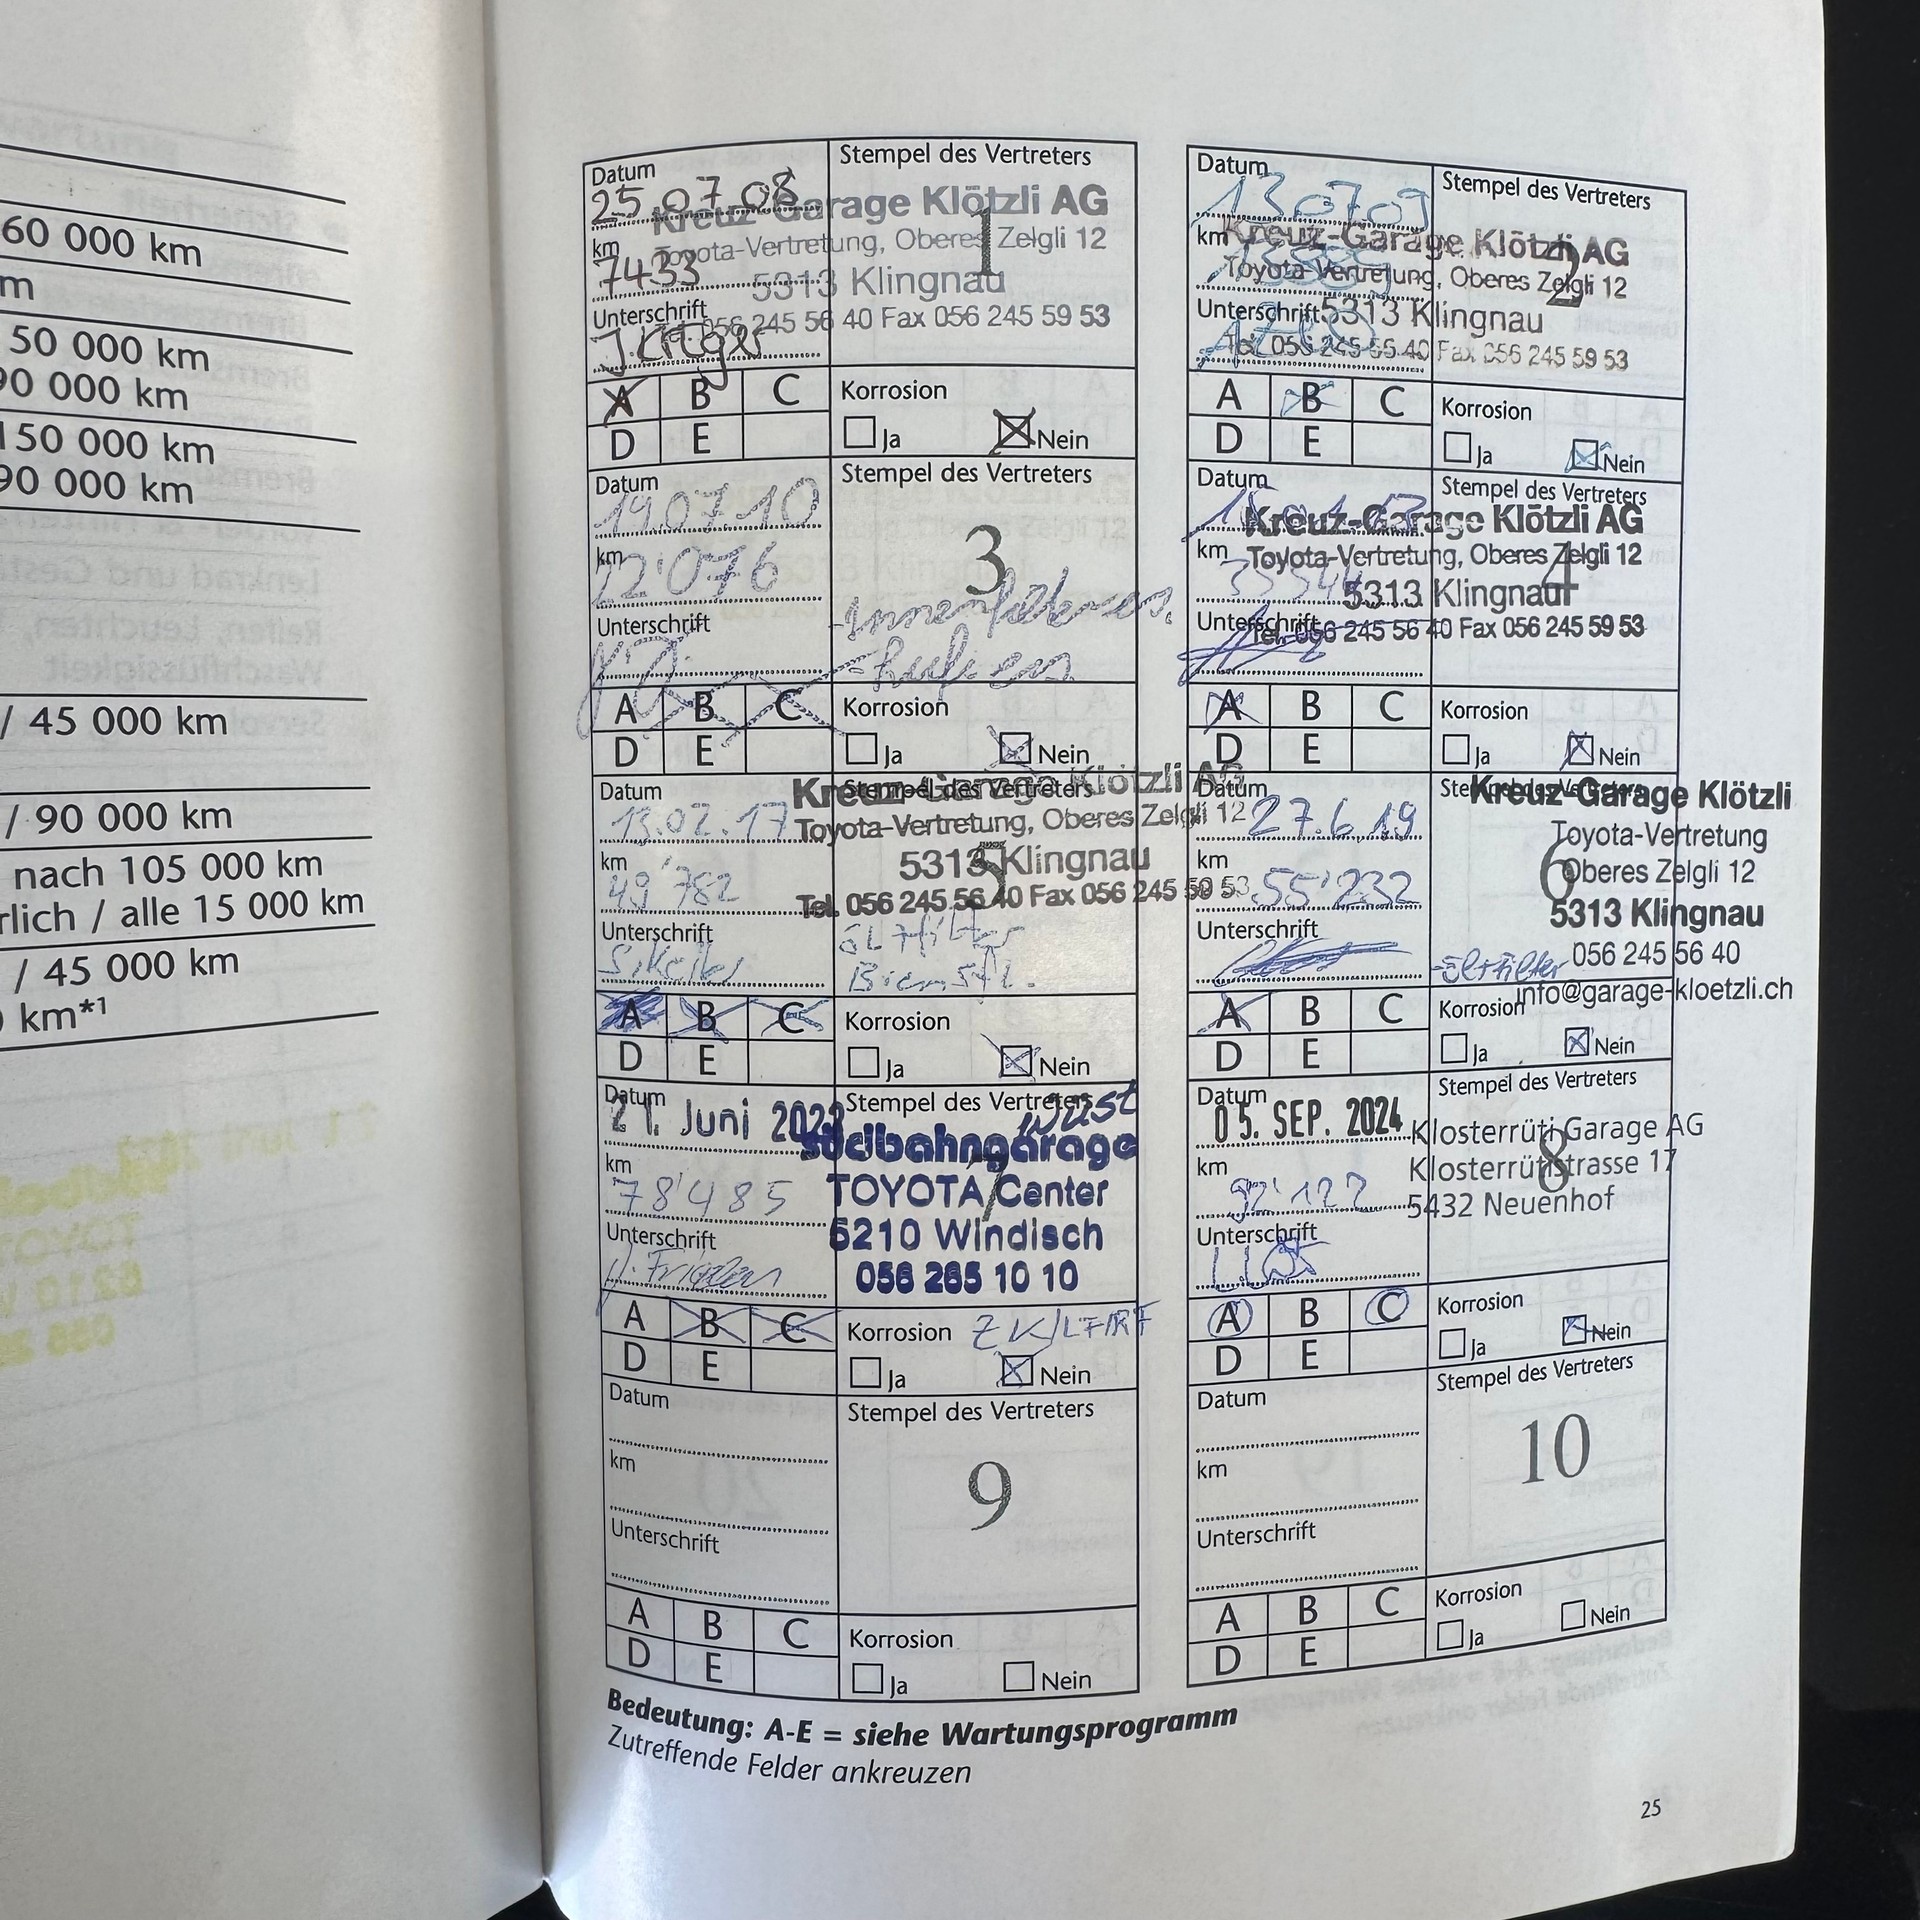 60 000 km
m
50 000 km
90 000 km
150 000 km
90 000 km
/ 45 000 km
/ 90 000 km
nach 105 000 km
rlich / alle 15 000 km
/ 45 000 km
) km*1
Datum
25 07 08
km
7433
Unterschrift
Stempel des Vertreters
1
Kreuz-Garage Klötzli AG
Toyota-Vertretung, Oberes Zelgli 12
5313 Klingnau
Tel. 056 245 56 40 Fax 056 245 59 53
A B C
D E
Korrosion
Ja Nein
Datum
13 07 09
km
Unterschrift
Stempel des Vertreters
2
Kreuz-Garage Klötzli AG
Toyota-Vertretung, Oberes Zelgli 12
5313 Klingnau
Tel. 056 245 56 40 Fax 056 245 59 53
A B C
D E
Korrosion
Ja Nein
Datum
19.07.10
km
22'076
Unterschrift
Stempel des Vertreters
3
A B C
D E
Korrosion
Ja Nein
Datum
km
Unterschrift
Stempel des Vertreters
4
Kreuz-Garage Klötzli AG
Toyota-Vertretung, Oberes Zelgli 12
5313 Klingnau
Tel. 056 245 56 40 Fax 056 245 59 53
A B C
D E
Korrosion
Ja Nein
Datum
13.02.17
km
49'782
Unterschrift
Stempel des Vertreters
5
Kreuz-Garage Klötzli AG
Toyota-Vertretung, Oberes Zelgli 12
5313 Klingnau
Tel. 056 245 56 40 Fax 056 245 59 53
Öl + Filter
Bremsfl.
A B C
D E
Korrosion
Ja Nein
Datum
27.6.19
km
55'232
Unterschrift
Stempel des Vertreters
6
Kreuz-Garage Klötzli
Toyota-Vertretung
Oberes Zelgli 12
5313 Klingnau
056 245 56 40
info@garage-kloetzli.ch
-Öl+Filter
A B C
D E
Korrosion
Ja Nein
Datum
21. Juni
km
78'485
Unterschrift
Stempel des Vertreters
7
wüst
südbahngarage
TOYOTA Center
5210 Windisch
056 265 10 10
A B C
D E
Korrosion ZK/LF/RF
Ja Nein
Datum
05. SEP. 2024
km
92'122
Unterschrift
Stempel des Vertreters
8
Klosterrüti Garage AG
Klosterrütistrasse 17
5432 Neuenhof
A B C
D E
Korrosion
Ja Nein
Datum
km
Unterschrift
Stempel des Vertreters
9
A B C
D E
Korrosion
Ja Nein
Datum
km
Unterschrift
Stempel des Vertreters
10
A B C
D E
Korrosion
Ja Nein
Bedeutung: A-E = siehe Wartungsprogramm
Zutreffende Felder ankreuzen
25